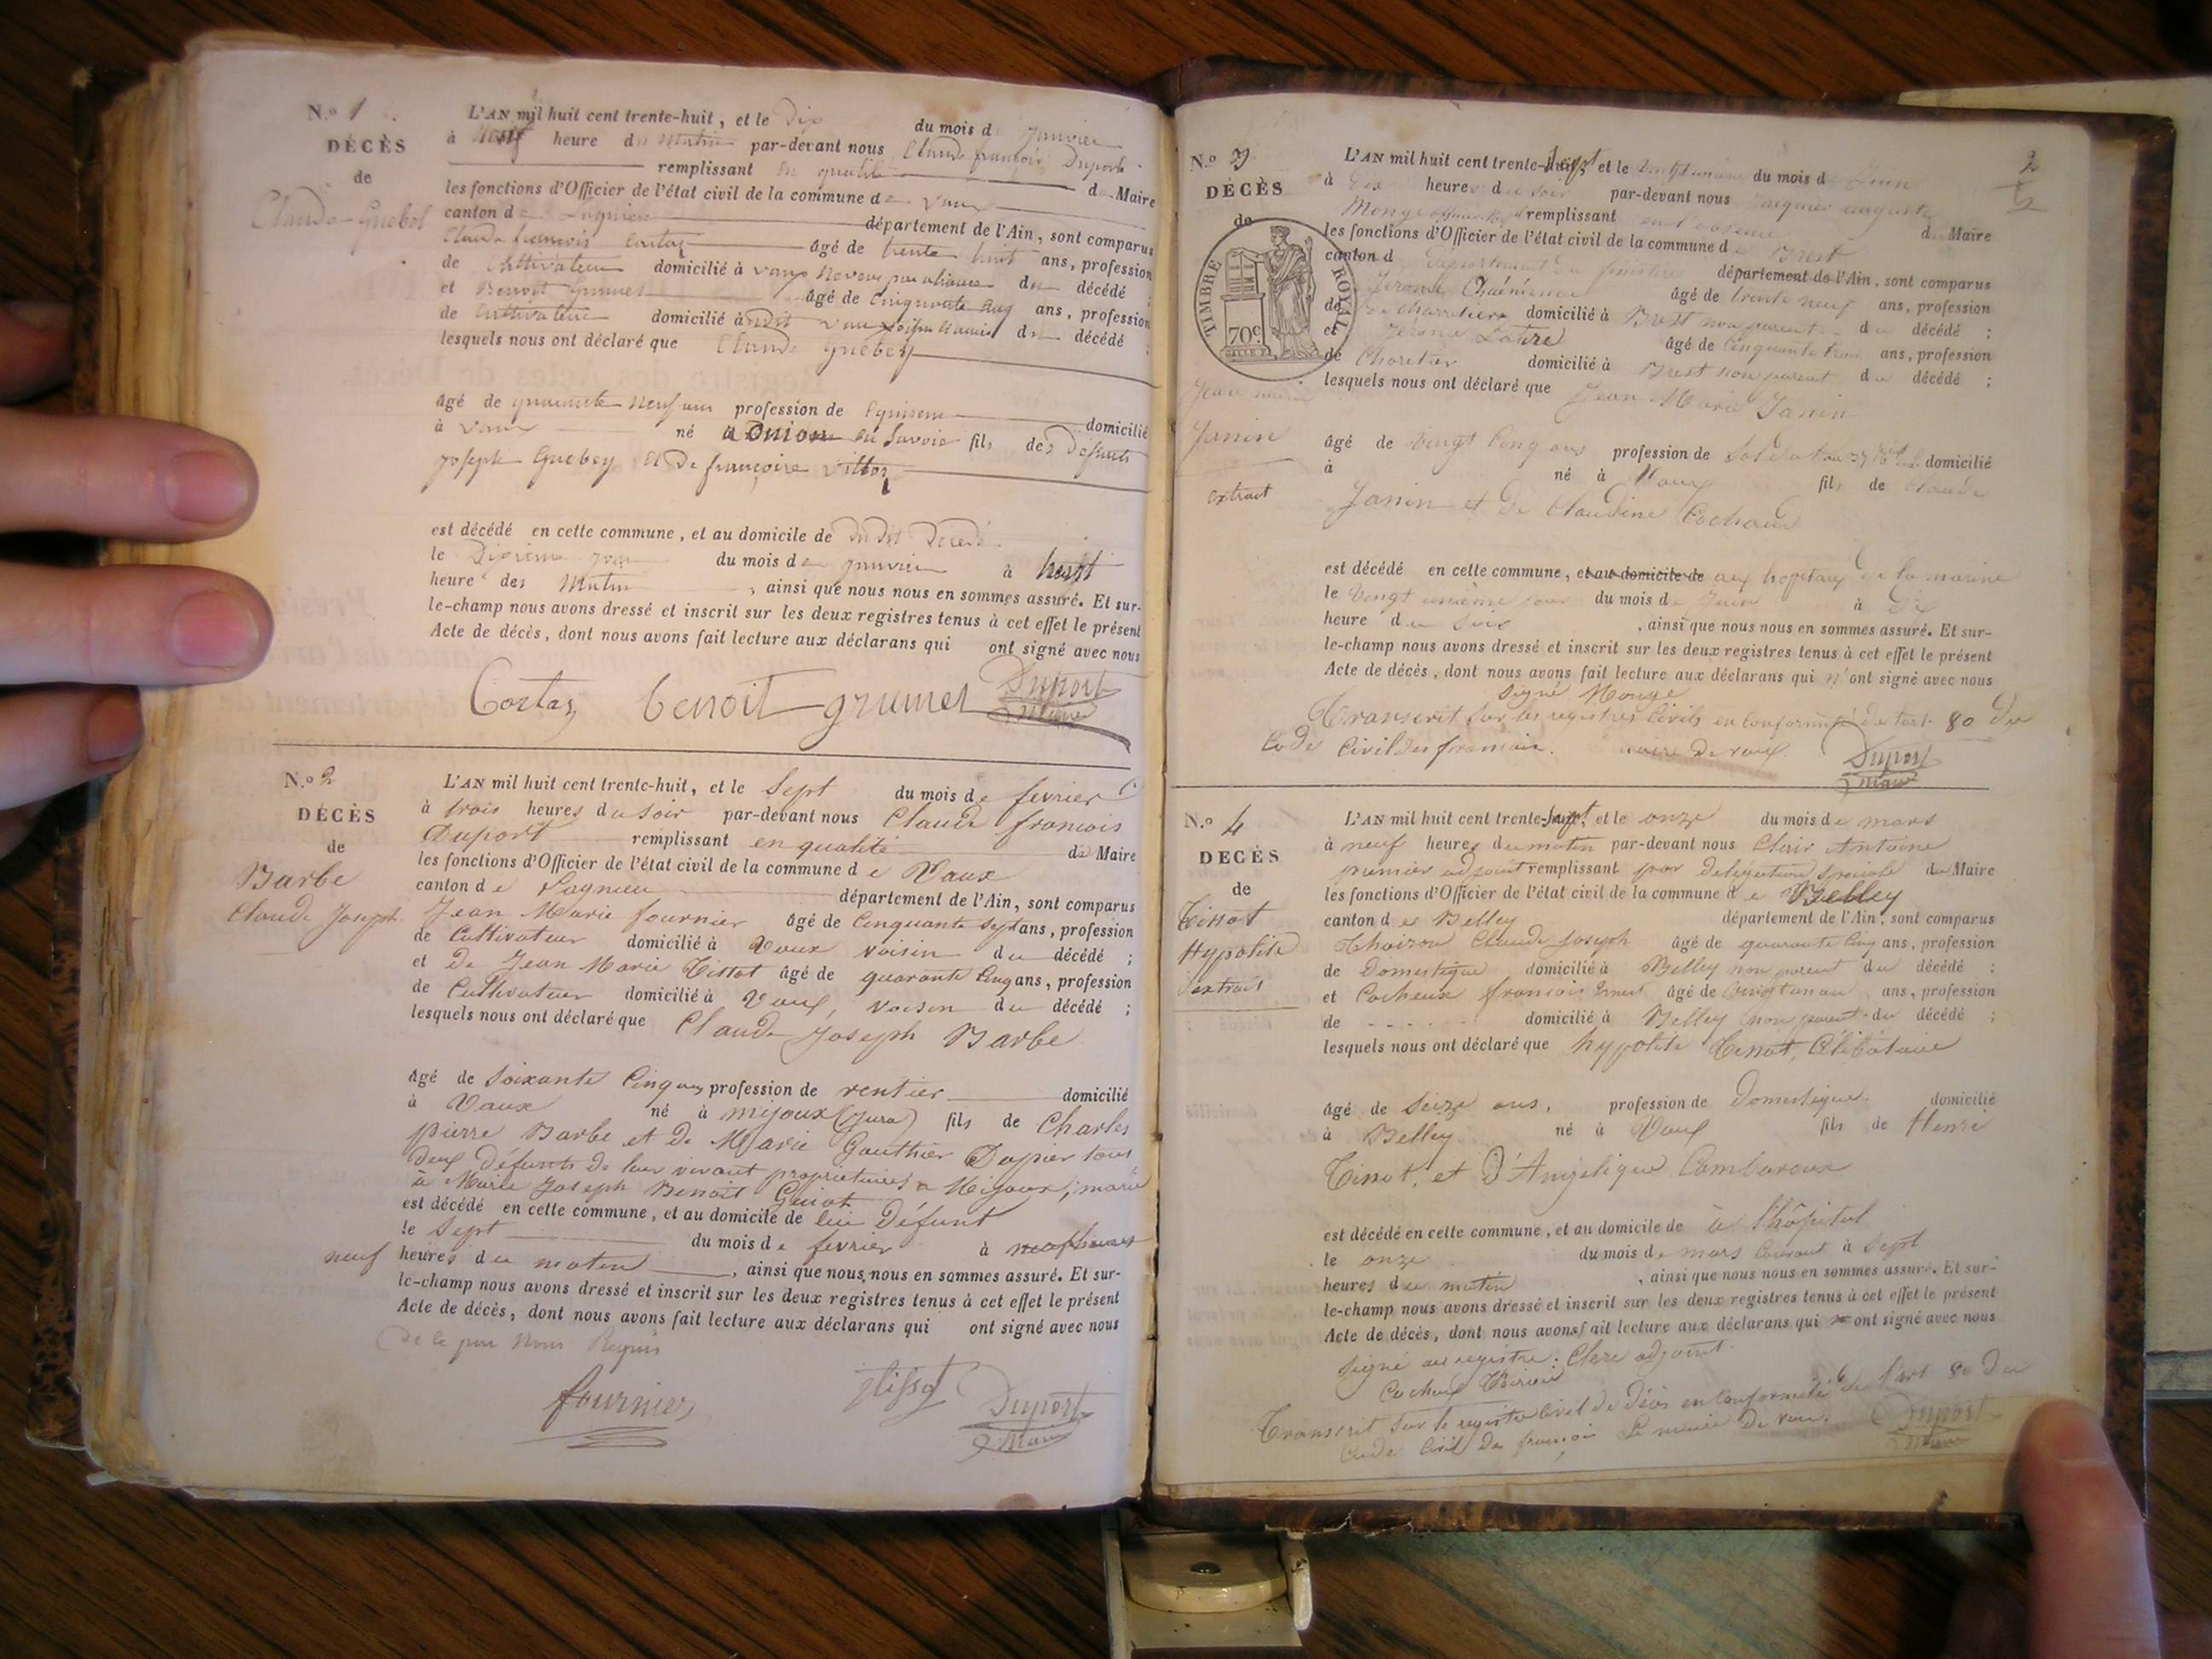 N.º 1
DÉCÈS
de
Claude Guebey
L'AN mil huit cent trente-huit, et le Dix du mois de Janvier
à Neuf heure du Matin par-devant nous Claude françois Duport
remplissant en qualité de Maire
les fonctions d'Officier de l'état civil de la commune de Vaux
canton de Lagnieu département de l'Ain, sont comparus
Claude françois Costaz âgé de trente huit ans, profession
de Cultivateur domicilié à Vaux Neveu par alliance du décédé ;
et Benoit Grumet âgé de Cinquante ans, profession
de Cultivateur domicilié à Vaux du décédé ;
lesquels nous ont déclaré que Claude Guebey
âgé de quarante Neuf ans profession de domicilié
à Vaux né à en Savoie fils des Défunts
Joseph Guebey et De françoise
est décédé en cette commune, et au domicile de dudit Décédé
le Dixième jour du mois de Janvier à
heure des Matin, ainsi que nous nous en sommes assuré. Et sur-
le-champ nous avons dressé et inscrit sur les deux registres tenus à cet effet le présent
Acte de décès, dont nous avons fait lecture aux déclarans qui ont signé avec nous
Costaz benoit grumet Duport
Maire
N.º 2
DÉCÈS
de
Barbe
Claude Joseph
L'AN mil huit cent trente-huit, et le Sept du mois de fevrier
à trois heures du soir par-devant nous Claude francois
Duport remplissant en qualité de Maire
les fonctions d'Officier de l'état civil de la commune de Vaux
canton de Lagnieu département de l'Ain, sont comparus
Jean Marie fournier âgé de Cinquante sept ans, profession
de Cultivateur domicilié à Vaux voisin du décédé ;
et De Jean Marie Tissot âgé de quarante Cinq ans, profession
de Cultivateur domicilié à Vaux, voisin du décédé ;
lesquels nous ont déclaré que Claude Joseph Barbe
âgé de Soixante Cinq ans profession de rentier domicilié
à Vaux né à mijoux (Jura) fils de Charles
pierre Barbe et De Marie Gauthier Dapier tous
deux défunts de leur vivant proprietaires a Mijoux, marié
à Marie Joseph Benoit Genot
est décédé en cette commune, et au domicile de lui Défunt
le Sept du mois de fevrier à
neuf heures du matin, ainsi que nous nous en sommes assuré. Et sur-
le-champ nous avons dressé et inscrit sur les deux registres tenus à cet effet le présent
Acte de décès, dont nous avons fait lecture aux déclarans qui ont signé avec nous
De ce par Nous Requis
fournier Jtissot Duport
Maire
2
N.º 3
DÉCÈS
de
TIMBRE ROYAL
70c
Jean marie
Janin
extrait
L'AN mil huit cent trente-sept et le vingt unième du mois de Juin
à Dix heures du soir par-devant nous Jacques auguste
Monge remplissant en l'absence du Maire
les fonctions d'Officier de l'état civil de la commune de Brest
canton d Département du finistère département de l'Ain, sont comparus
Jerome âgé de trente neuf ans, profession
de domicilié à Brest non parent du décédé ;
et Jerome âgé de Cinquante trois ans, profession
de Charetier domicilié à Brest non parent du décédé ;
lesquels nous ont déclaré que Jean Marie Janin
âgé de Vingt Cinq ans profession de Soldat au domicilié
à né à Vaux fils de Claude
Janin et De Claudine Cochaud
est décédé en cette commune, et au domicile de aux hopitaux de la marine
le Vingt unième jour du mois de Juin à Dix
heure du soir, ainsi que nous nous en sommes assuré. Et sur-
le-champ nous avons dressé et inscrit sur les deux registres tenus à cet effet le présent
Acte de décès, dont nous avons fait lecture aux déclarans qui n'ont signé avec nous
Signé Monge
Transcrit sur les registres Civils en Conformité de l'art. 80 du
Code Civil des francais. maire de vaux Duport
Maire
N.º 4
DECÈS
de
Tissot
Hypolite
extrait
L'AN mil huit cent trente-sept, et le onze du mois de mars
à neuf heures du matin par-devant nous Clerc Antoine
premier adjoint remplissant par Delegation Speciale du Maire
les fonctions d'Officier de l'état civil de la commune de Belley
canton de Belley département de l'Ain, sont comparus
Claude Joseph âgé de quarante Cinq ans, profession
de Domestique domicilié à Belley non parent du décédé ;
et Cocheux francois âgé de ans, profession
de - - - - domicilié à Belley non parent du décédé ;
lesquels nous ont déclaré que hypolite Tissot, Célibataire
âgé de Seize ans, profession de Domestique domicilié
à Belley né à Vaux fils de Henri
Tissot, et D'Angelique
est décédé en cette commune, et au domicile de à l'hôpital
le onze du mois de mars Courant à Sept
heures du matin, ainsi que nous nous en sommes assuré. Et sur-
le-champ nous avons dressé et inscrit sur les deux registres tenus à cet effet le présent
Acte de décès, dont nous avons fait lecture aux déclarans qui ont signé avec nous
Signé au registre : Clerc adjoint
Transcrit sur le registre Civil de Décès en Conformité de l'art 80 du
Code Civil des francais Le maire De vaux. Duport
Maire